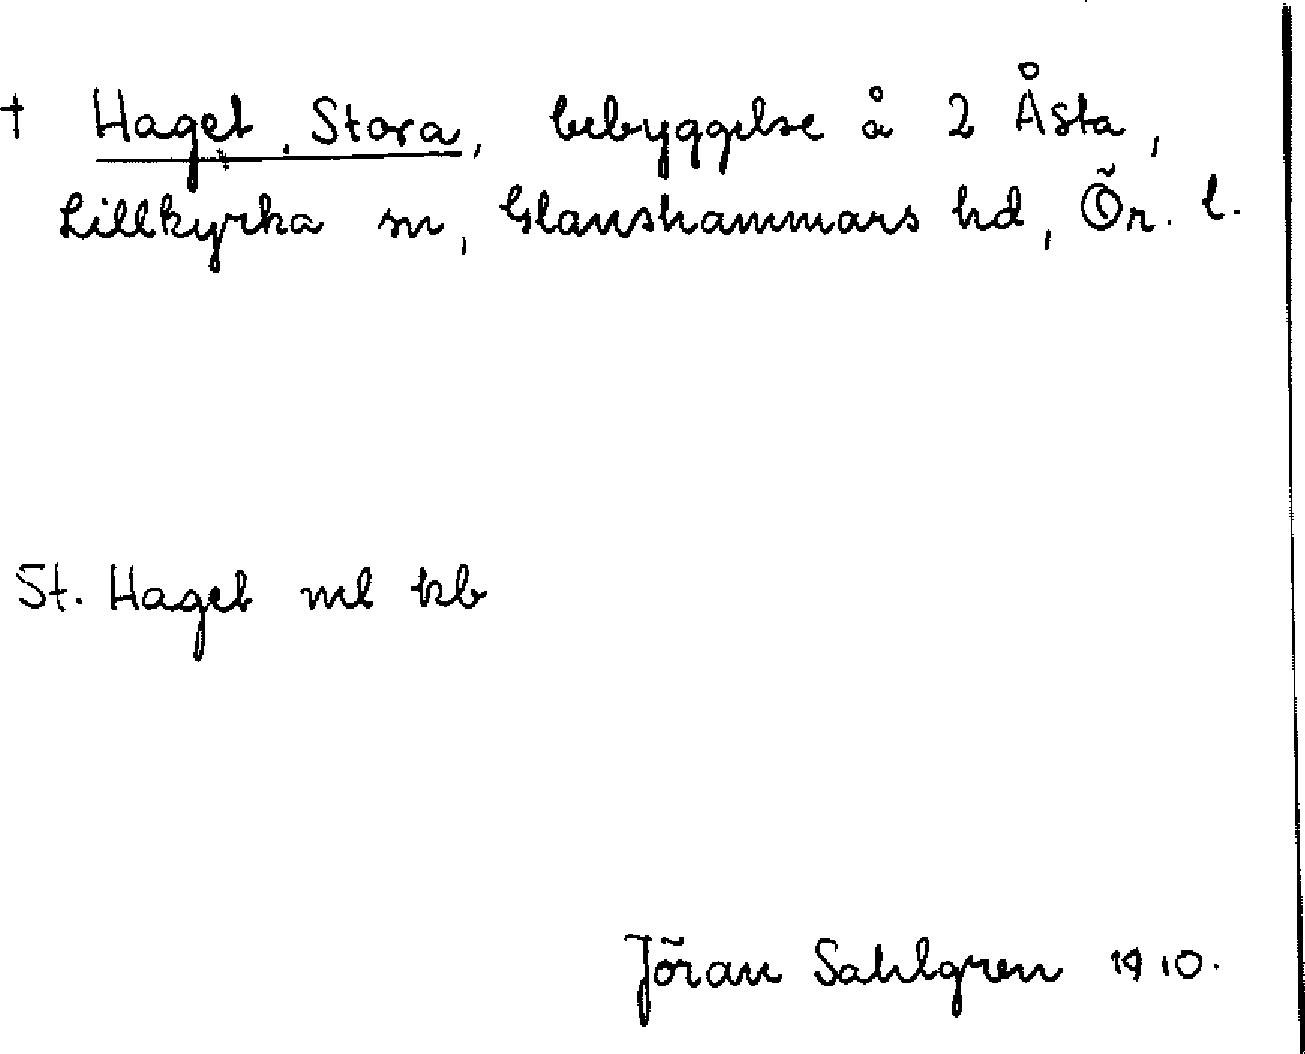 † Haget, Stora, bebyggelse å 2 Åsta,
Lillkyrka sn, Glanshammars hd, Ör. l.
St. Haget ml kb
Jöran Sahlgren 1910.